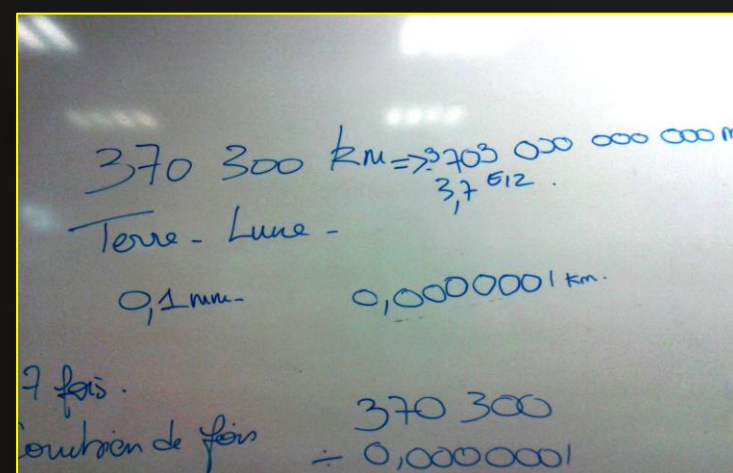 370 300 km => 3703 000 000 000 m
3,7 E12.
Terre - Lune -
0,1 mm- 0,0000001 km.
7 fois.
370 300
Combien de fois ÷ 0,0000001